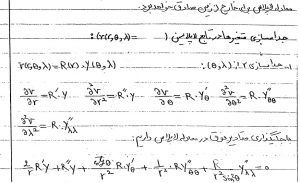 معادله لاپلاس برای خارج از زمین صادق خواهد بود.
جداسازی متغیرها در تابع لاپلاس ( = v(r,θ,λ) :
۱- جداسازی r از (θ,λ) : v(r,θ,λ) = R(r) . Y(θ,λ)
∂v/∂r = R'.Y   ∂²v/∂r² = R''.Y   ∂v/∂θ = R.Y'θ   ∂²v/∂θ² = R.Y''θθ
∂²v/∂λ² = R.Y''λλ
جایگذاری مقادیر فوق در معادله لاپلاس داریم:
2/r R'Y + R''Y + R.Y'θ + 1/r² . RY''θθ + R/r² sin²θ Y''λλ = 0